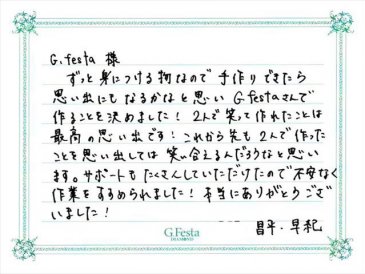 G.festa 様
ずっと身につける物なので手作りできたら
思い出にもなるかなと思い G.festaさんで
作ることを決めました！2人で笑って作れたことは
最高の思い出です！これから先も2人で作った
ことを思い出しては笑い合えるんだろうなと思い
ます。サポートもたくさんしていただけたので不安なく
作業をすすめられました！本当にありがとうござ
いました！
昌平・早紀
G.Festa
DIAMOND